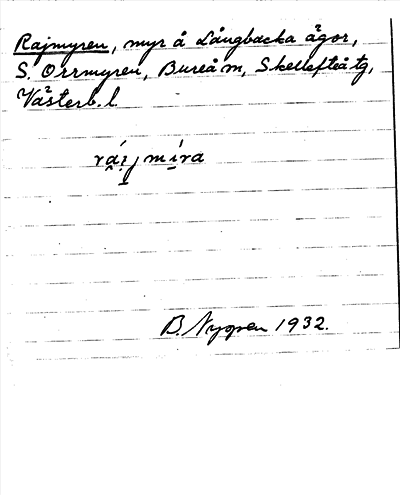 Rajmyren, myr å Långbacka ägor,
S. Orrmyren, Bureå m, Skellefteå tg,
Västerb. l.
B. Nygren 1932.